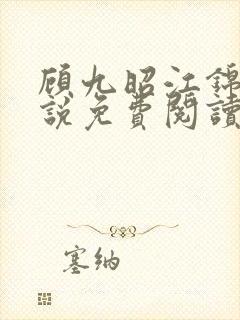 顾九昭江锦
説免費閱讀
塞纳